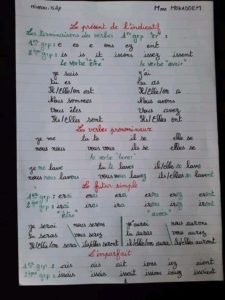 Niveau: 5AP Mme MOKADDEM
Le présent de l'indicatif
Les terminaisons des verbes 1er grp "er" :
1er grp : e es e ons ez ent
2ème grp : is is it issons issez issent
le verbe "être" le verbe "avoir"
je suis j'ai
tu es tu as
Il/Elle/on est Il/Elle/on a
Nous sommes nous avons
vous êtes vous avez
Ils/Elles sont Ils/Elles ont
Les verbes pronominaux
je me tu te il se elle se
nous nous vous vous ils se elles se
le verbe laver
je me lave tu te laves il/elle/on se lave
nous nous lavons vous vous lavez ils/elles se lavent
Le futur simple
1er grp : erai eras era erons erez eront
2ème grp : irai iras ira irons irez iront
"être" "avoir"
je serai nous serons j'aurai nous aurons
tu seras vous serez tu auras vous aurez
Il/Elle/on sera ils/elles seront il/elle/on aura ils/elles auront
L'imparfait
1er grp : ais ais ait ions iez aient
2ème grp : issais issais issait issions issiez issaient